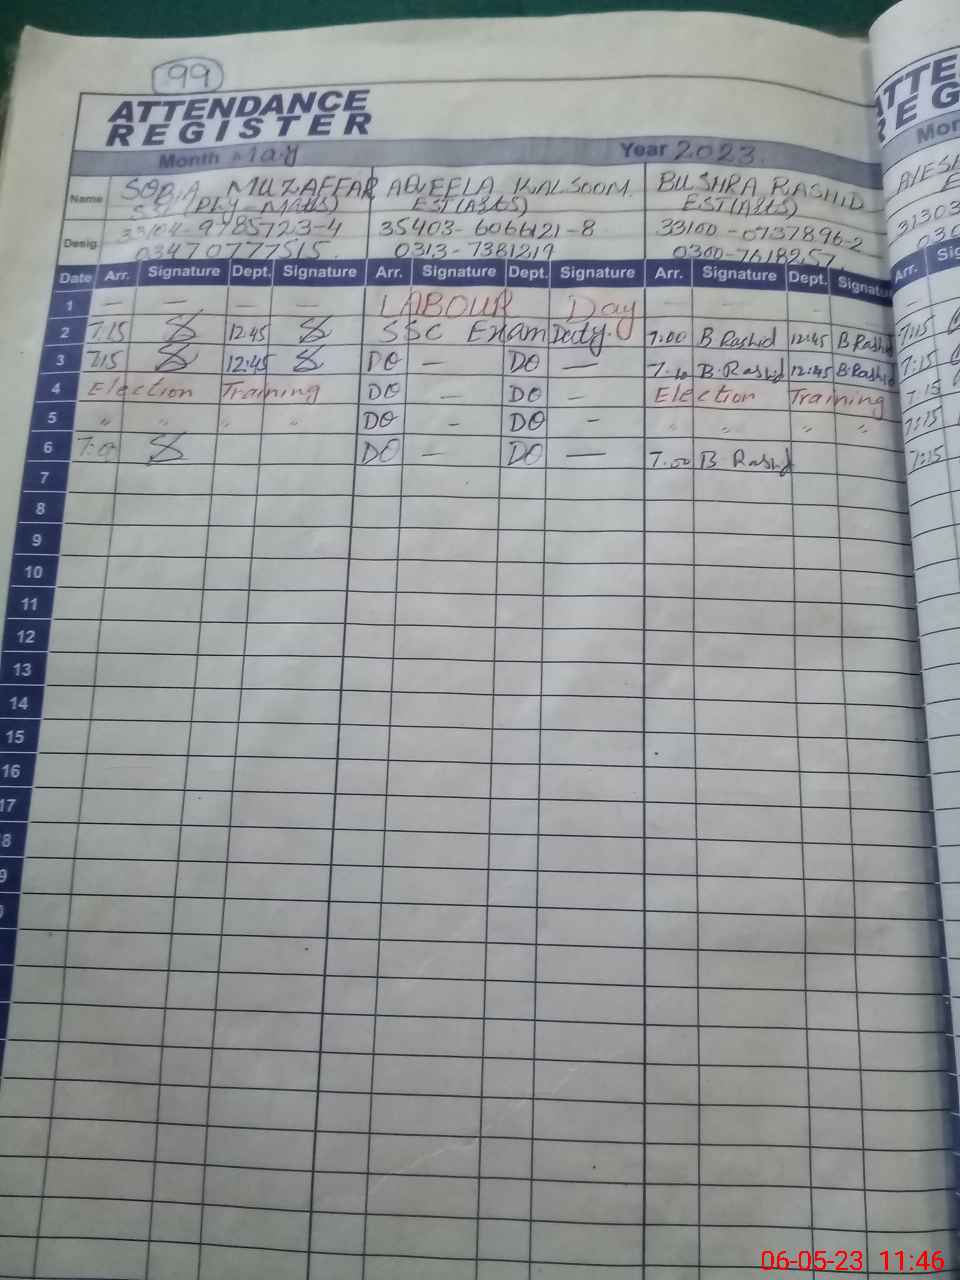 99
ATTENDANCE
REGISTER
Month May Year 2023
Name SOBIA MUZAFFAR ADEELA KALSOOM BUSHRA RASHID
SST (Phy-Maths) EST(Arts) EST(Arts)
33104-9785723-4 35403-6066121-8 33100-0737896-2
Desig. 03470777515 0313-7381219 0300-7618257
Date Arr. Signature Dept. Signature Arr. Signature Dept. Signature Arr. Signature Dept. Signature
1 — — — — LABOUR Day — —
2 7.15 12.45 SSC Exam Duty. 7.00 B Rashid 12:45 B Rashid
3 7.15 12:45 DO — DO — 7.10 B. Rashid 12:45 B. Rashid
4 Election Training DO — DO — Election Training
5 " " " " DO - DO - " " " "
6 7:0 DO — DO — 7.00 B Rashid
7
8
9
10
11
12
13
14
15
16
17
8
9
ATTE
REG
Mon
AYES
31303
030
Arr. Sig
7:15
7:15
7.15
7:15
7:15
06-05-23 11:46